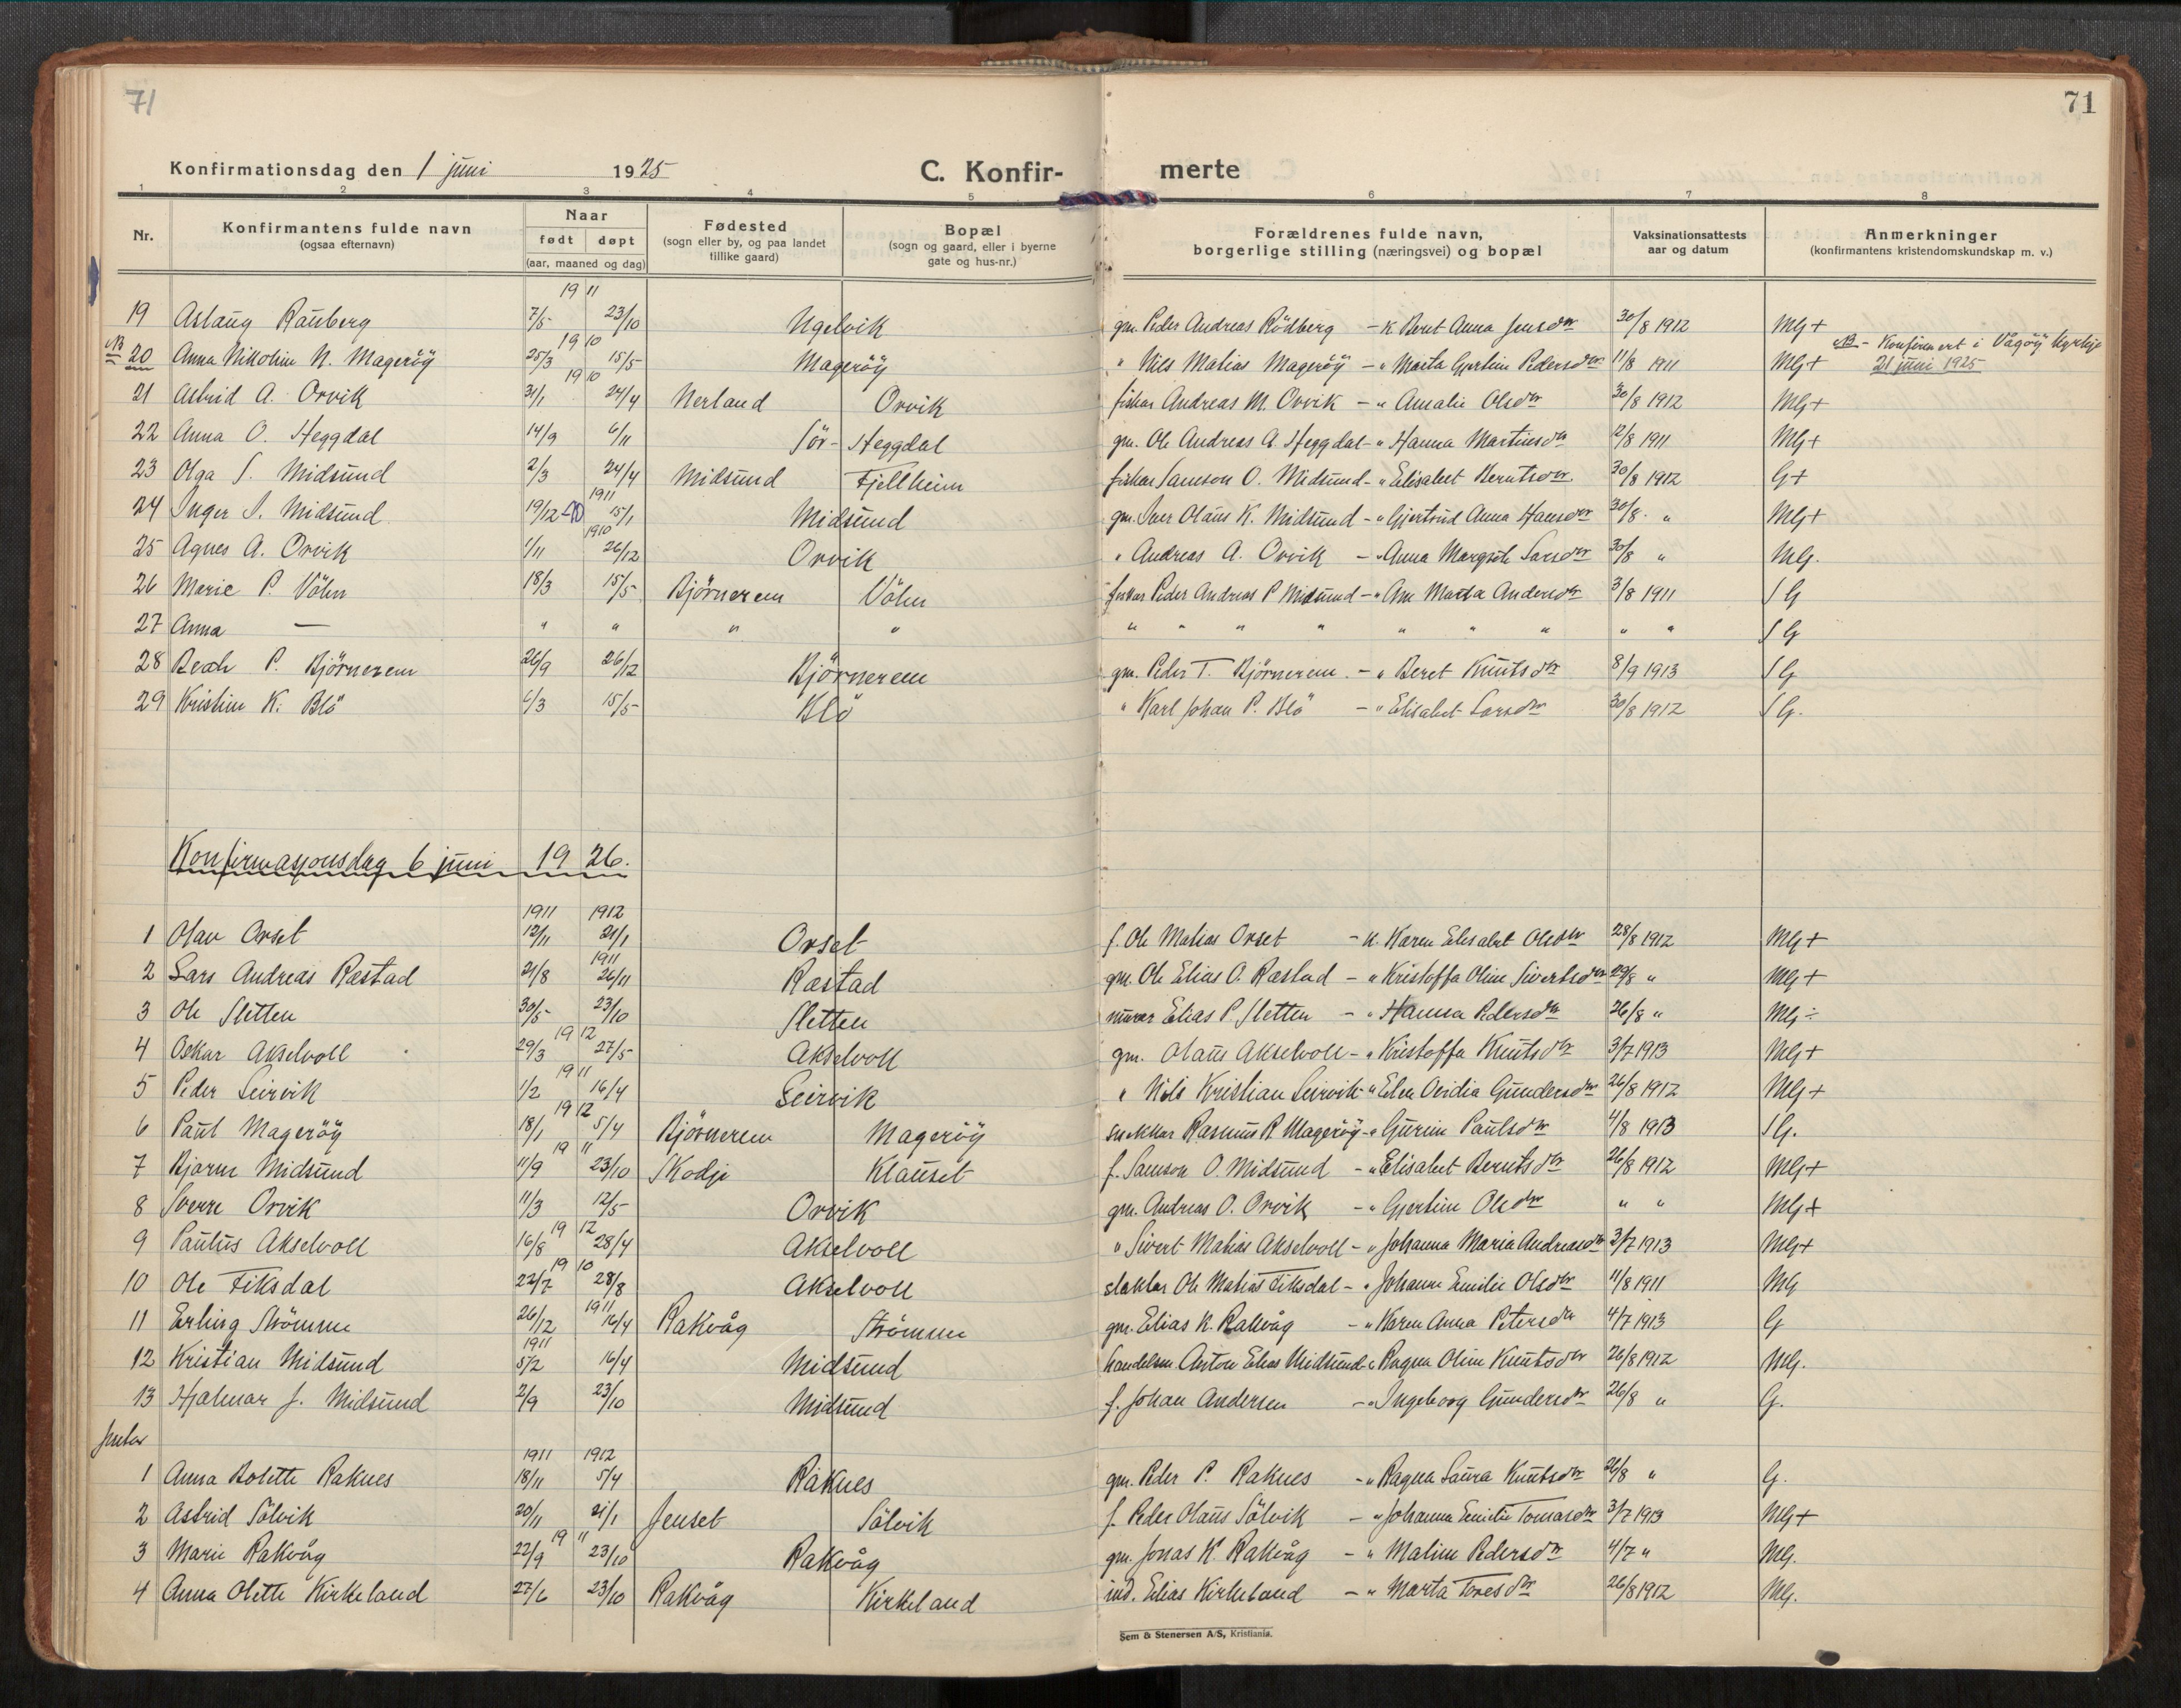 71
71
Konfirmationsdag den 1 juni 1925 C. Konfir- merte
1 2 3 4 5 6 7 8
Nr. Konfirmantens fulde navn (ogsaa efternavn) Naar født døpt (aar, maaned og dag) Fødested (sogn eller by, og paa landet tillike gaard) Bopæl (sogn og gaard, eller i byerne gate og hus-nr.) Forældrenes fulde navn, borgerlige stilling (næringsvei) og bopæl Vaksinationsattests aar og datum Anmerkninger (konfirmantens kristendomskundskap m. v.)
1911
19 Aslaug Rauberg 7/5 23/10 Ugelvik gm. Peder Andreas Rödberg - k. Beret Anna Jensdtr 30/8 1912 Mg+
1910
NB 20 Anna Nikoline N. Mageröy 25/3 15/5 Mageröy " Nils Matias Mageröy - " Marta Gjertine Pedersdtr 11/8 1911 Mg+ NB - Konfirmert i Vågöy kyrkje 21 juni 1925
1910
21 Astrid A. Orvik 31/1 24/4 Nerland Orvik fiskar Andreas M. Orvik - " Amalie Olsdtr 30/8 1912 Mg+
22 Anna O. Heggdal 14/9 6/11 Sör- Heggdal gm. Ole Andreas A. Heggdal - " Hanna Martinsdtr 12/8 1911 Mg+
23 Olga S. Midsund 2/3 24/4 Midsund Fjellheim fiskar Samson O. Midsund - " Elisabet Berntsdtr 30/8 1912 G+
1911
24 Inger I. Midsund 19/12-10 15/1 Midsund gm. Iver Olaus K. Midsund - " Gjertrud Anna Hansdtr 30/8 - " Mg+
1910
25 Agnes A. Orvik 1/11 26/12 Orvik " Andreas A. Orvik - " Anna Margrete Larsdtr 30/8 " Mg.
26 Marie P. Vöhn 18/3 15/5 Björnerem Vöhn fiskar Peder Andreas P Midsund - " Ane Marta Andersdtr 3/8 1911 S G
27 Anna — " " " " " " " " " " " " " S G
28 Berth P. Björnerem 26/9 26/12 Björnerem gm. Peder T. Björnerem. - " Beret Knutsdtr 8/9 1913 S G
29 Kristine K. Blö 6/3 15/5 Blö " Karl Johan P. Blö - " Elisabet Larsdtr 30/8 1912 S G.
Konfirmasjonsdag 6 juni 1926.
1911 1912
1 Olav Orset 12/11 21/1 Orset f. Ole Matias Orset - k. Karen Elisabet Olsdtr 28/8 1912 Mg+
1911
2 Lars Andreas Ræstad 21/8 26/11 Ræstad gm. Ole Elias O. Ræstad - " Kristoffa Oline Sivertsdtr 29/8 " Mg+
3 Ole Sletten 30/5 23/10 Sletten murar Elias P. Sletten - " Hanna Pedersdtr 26/8 " Mg÷
1912
4 Oskar Akselvoll 29/3 27/5 Akselvoll gm. Olaus Akselvoll - " Kristoffa Knutsdtr 3/7 1913 Mg+
1911
5 Peder Seirvik 1/2 16/4 Seirvik " Nils Kristian Seirvik - " Elen Ovidia Gundersdtr 26/8 1912 Mg+
1912
6 Paul Mageröy 18/1 5/4 Björnerem Mageröy snekkar Rasmus R. Mageröy - " Gurine Paulsdtr 4/8 1913 S G.
1911
7 Bjarne Midsund 11/9 23/10 Skodje Klauset f. Samson O. Midsund - " Elisabet Berntsdtr 26/8 1912 Mg+
8 Sverre Orvik 11/3 12/5 Orvik gm. Andreas O. Orvik - " Gjertine Olsdtr " " Mg+
1912
9 Paulus Akselvoll 16/8 28/4 Akselvoll " Sivert Matias Akselvoll - " Johanna Maria Andreasdtr 3/7 1913 Mg+
1910
10 Ole Fiksdal 22/7 28/8 Akselvoll slaktar Ole Matias Fiksdal - " Johanne Emilie Olsdtr 11/8 1911 Mg
1911
11 Erling Strömme 26/12 16/4 Rakvåg Strömme gm. Elias K. Rakvåg - " Karen Anna Petersdtr 4/7 1913 G
1911
12 Kristian Midsund 5/2 16/4 Midsund handelsm. Anton Elias Midsund - " Ragna Oline Knutsdtr 26/8 1912 Mg.
13 Hjalmar J. Midsund 2/9 23/10 Midsund f. Johan Andersen - " Ingeborg Gundersdtr 26/8 " G.
Jenter
1911 1912
1 Anna Bolette Raknes 18/11 5/4 Raknes gm. Peder P. Raknes - " Ragna Laura Knutsdtr 26/8 " G.
2 Astrid Sölvik 20/11 21/1 Jenset Sölvik f. Peder Olaus Sölvik - " Johanna Emilie Tomasdtr 3/7 1913 Mg+
1911
3 Marie Rakvåg 22/9 23/10 Rakvåg gm. Jonas K. Rakvåg - " Maline Pedersdtr 4/7 " Mg.
4 Anna Olette Kirkeland 27/6 23/10 Rakvåg Kirkeland ind. Elias Kirkeland - " Marta Toresdtr 26/8 1912 Mg.
Sem & Stenersen A/S, Kristiania.